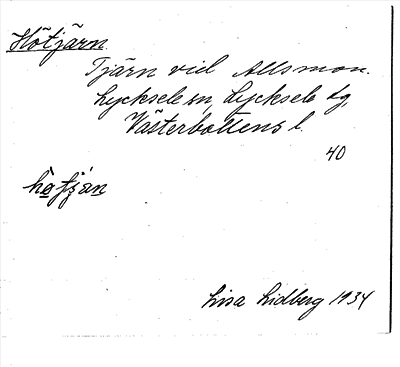 Hötjärn.
Tjärn vid Allsmon.
Lycksele sn, Lycksele lg
Västerbottens l.
40
Lisa Lidberg 1934